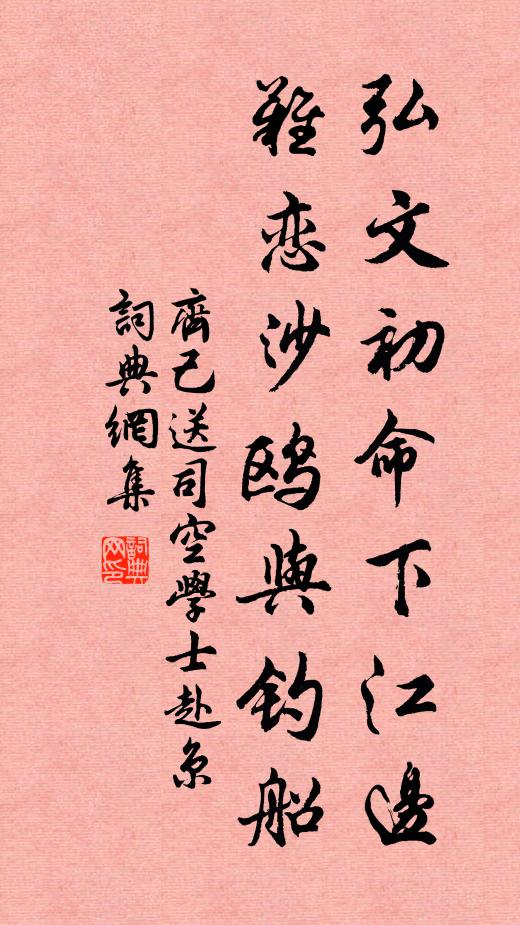 弘文初命下江邊
難恋沙鸥與钓船
齊己送司空學士赴京
詞典網集
詞典网印